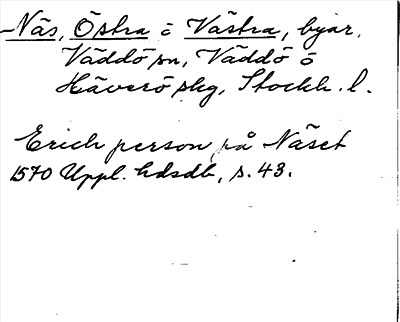 -Näs, Östra o Västra, byar,
Väddö sn, Väddö o
Häverö skg, Stockh. l.
Erich person på Näset
1570 Uppl. hdsdb, s. 43.